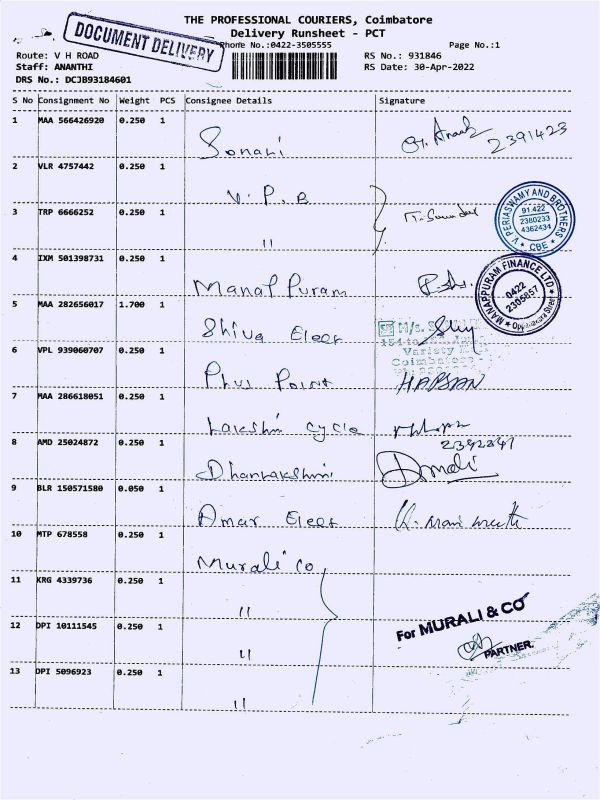 THE PROFESSIONAL COURIERS, Coimbatore
DOCUMENT DELIVERY
Delivery Runsheet - PCT
Phone No.:0422-3505555
Page No.:1
Route: V H ROAD
RS No.: 931846
Staff: ANANTHI
RS Date: 30-Apr-2022
DRS No.: DCJB93184601
S No Consignment No Weight PCS Consignee Details Signature
1 MAA 566426920 0.250 1
Sonari 2391423
2 VLR 4757442 0.250 1
V. P. B
3 TRP 6666252 0.250 1
"
V PERIASWAMY AND BROTHERS
91.422
2380233
4362434
★ CBE ★
4 IXM 501398731 0.250 1
Manap Puram
MANAPPURAM FINANCE LTD
0422
2305857
5 MAA 282656017 1.700 1
Shiva Elect
M/s. S
Variety
Coimbatore
6 VPL 939060707 0.250 1
Plus Point HAPSAN
7 MAA 286618051 0.250 1
Lakshmi cycle
8 AMD 25024872 0.250 1
Dhanlakshmi
9 BLR 150571580 0.050 1
Amar Elect
10 MTP 678558 0.250 1
Murali Co
11 KRG 4339736 0.250 1
"
12 DPI 10111545 0.250 1
"
For MURALI & CO
PARTNER.
13 DPI 5096923 0.250 1
"